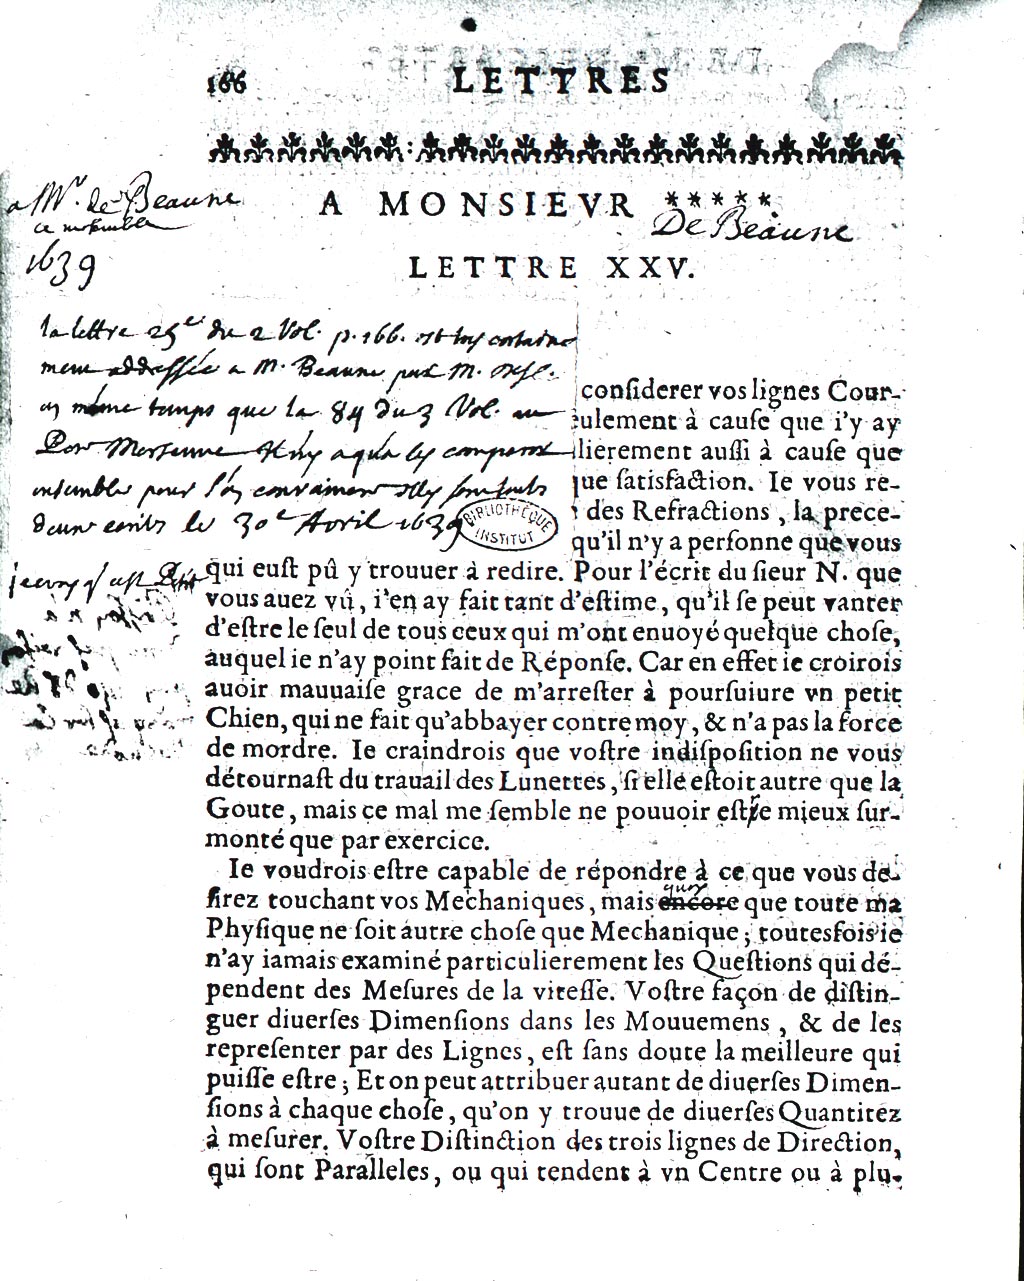 166 LETTRES
A MONSIEVR *****
De Beaune
a Mr. de Beaune
1639
LETTRE XXV.
la lettre 25e du 2 Vol. p. 166. est
a M. Beaune par M.
en même temps que la 84 du 3 Vol. au
Mersenne
ensemble pour
le 30e Avril 1639
BIBLIOTHÈQUE
INSTITUT
considerer vos lignes Cour-
ulement à cause que i'y ay
lierement aussi à cause que
que satisfaction. Ie vous re-
des Refractions, la prece-
qu'il n'y a personne que vous
qui eust pû y trouuer à redire. Pour l'écrit du sieur N. que
vous auez vû, i'en ay fait tant d'estime, qu'il se peut vanter
d'estre le seul de tous ceux qui m'ont enuoyé quelque chose,
auquel ie n'ay point fait de Réponse. Car en effet ie croirois
auoir mauuaise grace de m'arrester à poursuiure vn petit
Chien, qui ne fait qu'abbayer contre moy, & n'a pas la force
de mordre. Ie craindrois que vostre indisposition ne vous
détournast du trauail des Lunettes, si elle estoit autre que la
Goute, mais ce mal me semble ne pouuoir estre mieux sur-
monté que par exercice.
Ie voudrois estre capable de répondre à ce que vous de-
quoy
sirez touchant vos Mechaniques, mais encore que toute ma
Physique ne soit autre chose que Mechanique; toutesfois ie
n'ay iamais examiné particulierement les Questions qui dé-
pendent des Mesures de la vitesse. Vostre façon de distin-
guer diuerses Dimensions dans les Mouuemens, & de les
representer par des Lignes, est sans doute la meilleure qui
puisse estre; Et on peut attribuer autant de diuerses Dimen-
sions à chaque chose, qu'on y trouue de diuerses Quantitez
à mesurer. Vostre Distinction des trois lignes de Direction,
qui sont Paralleles, ou qui tendent à vn Centre ou à plu-